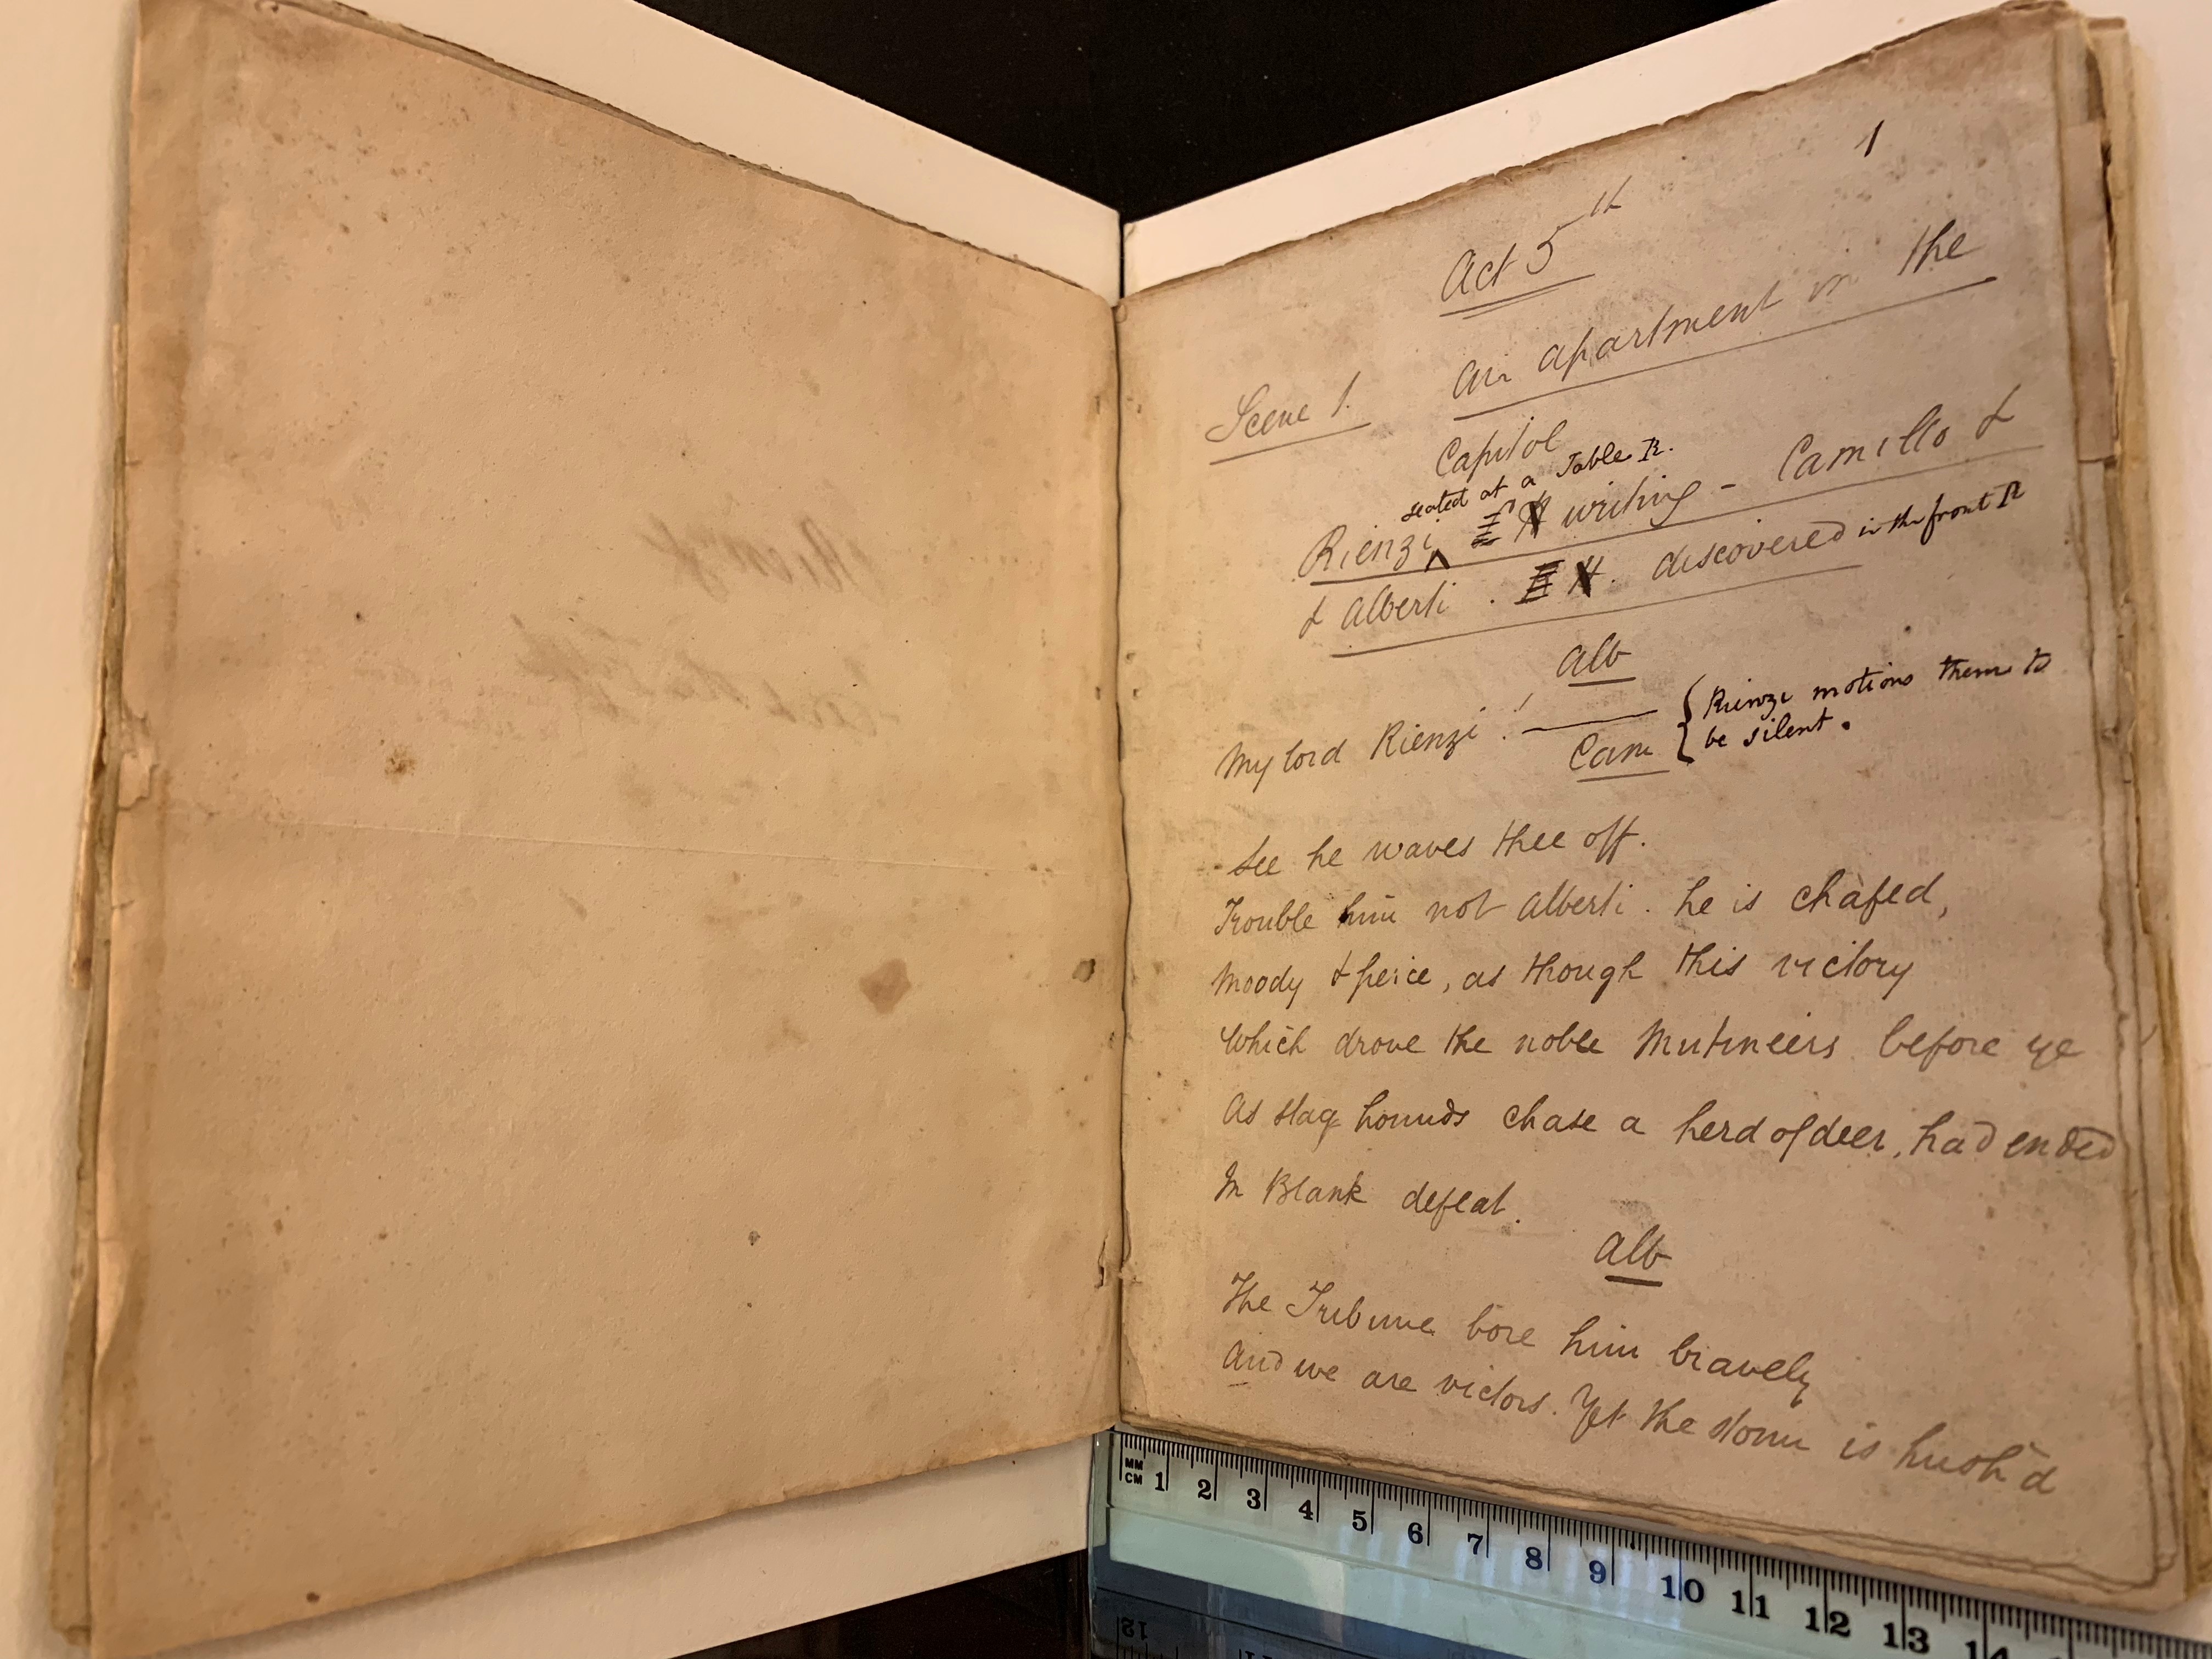 1
Act 5th
Scene 1. An apartment in the
Capitol
seated at a Table R.
Rienzi writing - Camillo &
& Alberti . discovered in the front R
Alb
My lord Rienzi !
Cam
Rienzi motions them to
be silent.
See he waves thee off.
Trouble him not Alberti. he is chafed,
Moody & feirce, as though this victory
Which drove the noble Mutineers before ye
As stag hounds chase a herd of deer, had ended
In Blank defeat.
Alb
The Tribune bore him bravely
And we are victors. Yet the storm is hush'd
MM
CM 1 2 3 4 5 6 7 8 9 10 11 12 13 14
12 11